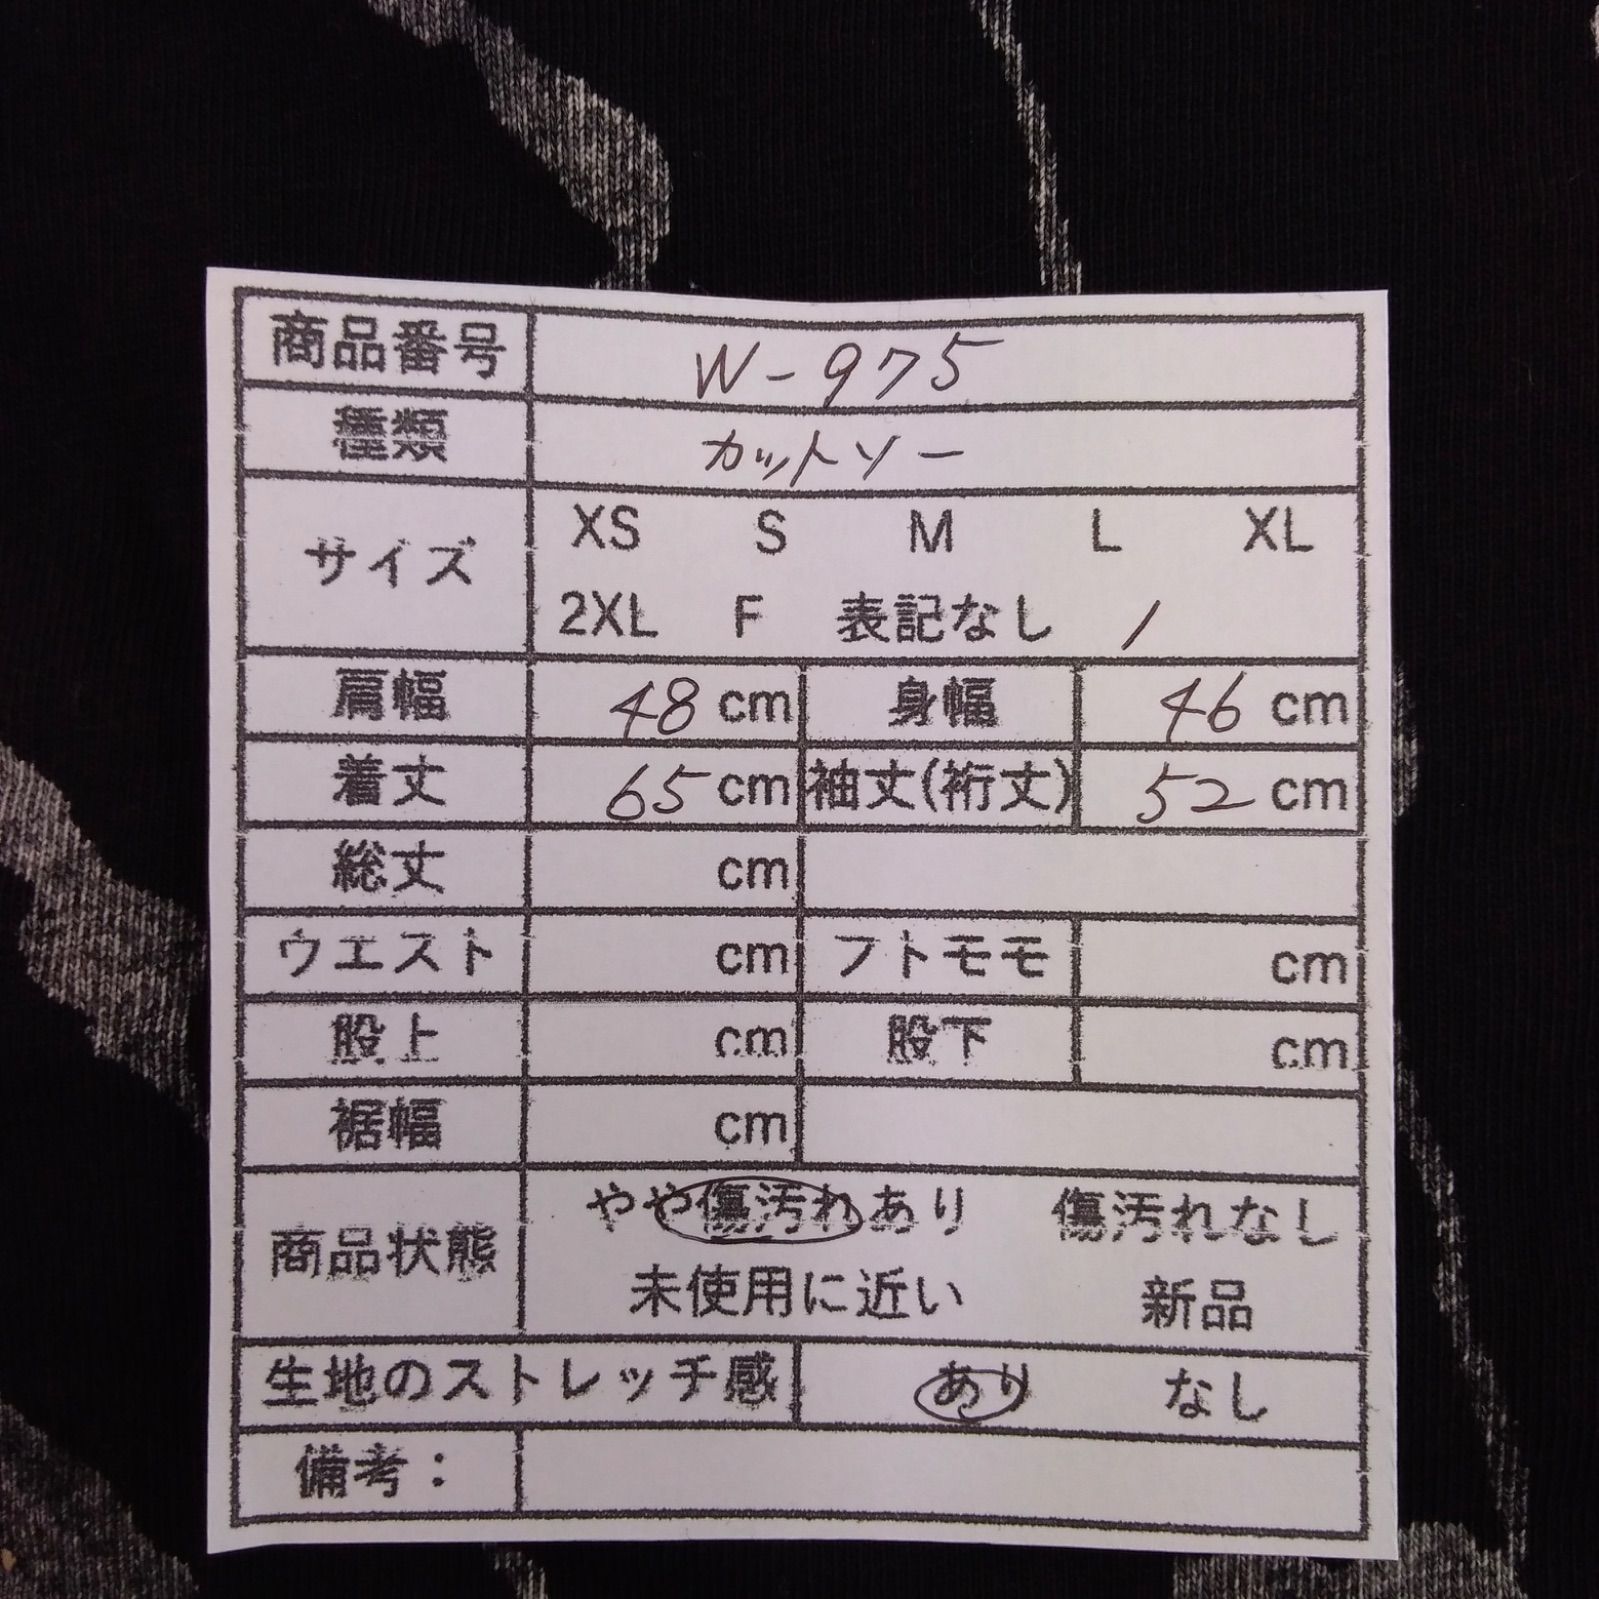 商品番号 W-975
種類 カットソー
サイズ XS S M L XL
2XL F 表記なし 1
肩幅 48 cm 身幅 46 cm
着丈 65 cm 袖丈(裄丈) 52 cm
総丈 cm
ウエスト cm フトモモ cm
股上 cm 股下 cm
裾幅 cm
商品状態 やや傷汚れあり 傷汚れなし
未使用に近い 新品
生地のストレッチ感 あり なし
備考：